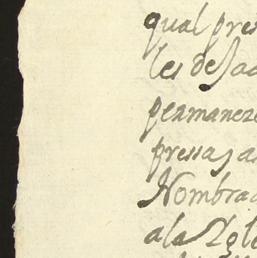 qual pres
les de sac
permanez
pressas a
Nombrad
a la Igle